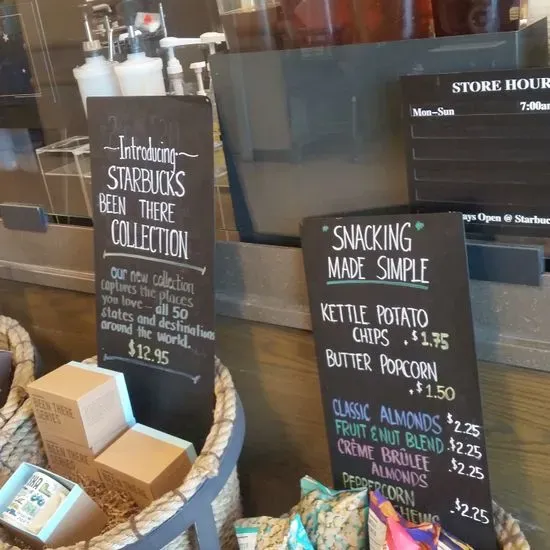 Introducing
STARBUCKS
BEEN THERE
COLLECTION
our new collection
captures the places
you love - all 50
states and destinations
around the world.
$12.95
SNACKING
MADE SIMPLE
KETTLE POTATO
CHIPS . $1.75
BUTTER POPCORN
. $1.50
CLASSIC ALMONDS $2.25
FRUIT & NUT BLEND $2.25
CRÈME BRÛLEE $2.25
ALMONDS
PEPPERCORN
$2.25
STORE HOUR
Mon–Sun 7:00a
ays Open @ Starbuc
BEEN THERE
SERIES
BEEN THERE
SERIES